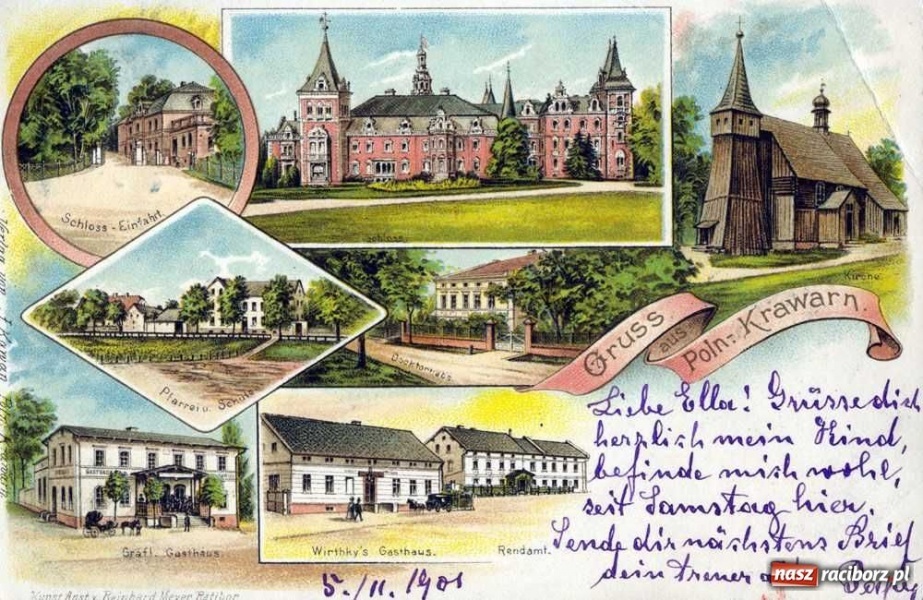 Schloss - Einfahrt.
Schloss.
Kirche.
Pfarrei u. Schule
Doctorhaus.
Gruss aus Poln.- Krawarn.
GASTHAUS
Gräfl. Gasthaus.
Wirthky's Gasthaus.
Rendamt.
Liebe Ella! Grüsse dich
herzlich mein Kind,
befinde mich wohl,
seit Samstag hier.
Sende dir nächstens Brief
dein treuer
5./11. 1901
Kunst Anst. v. Reinhard Meyer, Ratibor
Verlag von
nasz raciborz.pl